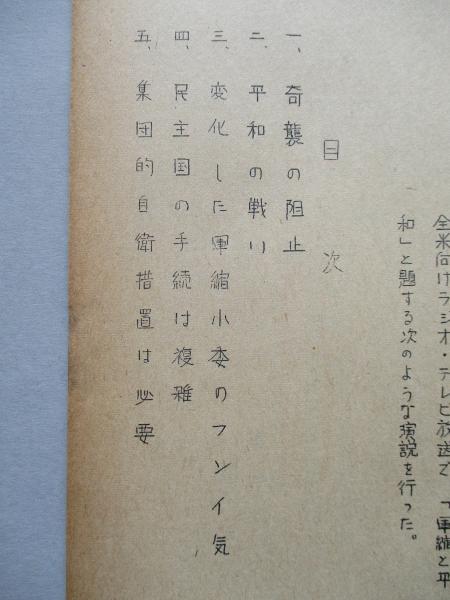 全米向けラジオ・テレビ放送で、「軍縮と平
和」と題する次のような演説を行った。
目次
一、奇襲の阻止
二、平和の戦い
三、変化した軍縮小委のフンイ気
四、民主国の手続は複雑
五、集団的自衛措置は必要